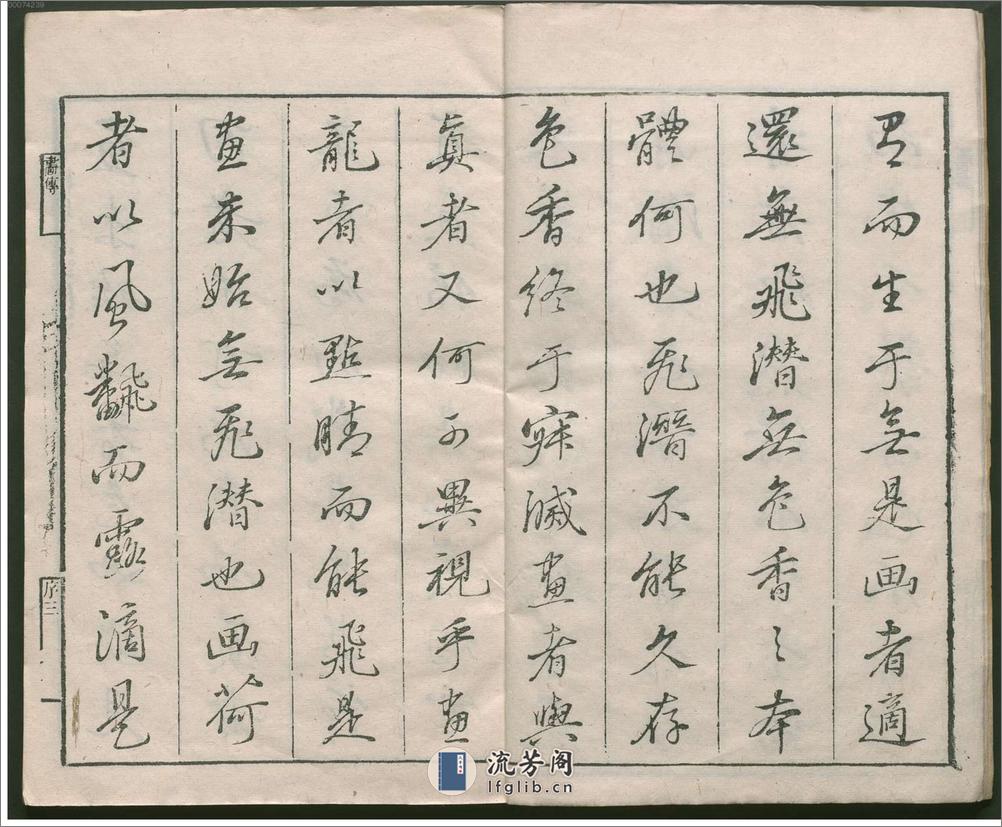 胃而生于無是画者適
還無飛潛無色香之本
體何也飛潛不能久存
色香終于寂滅畫者與
真者又何可異視乎畫
龍者以點睛而能飛是
畫未始無飛潛也画荷
者以風飜而露滴是
畫傳
序三
流芳阁
lfglib.cn
00074239